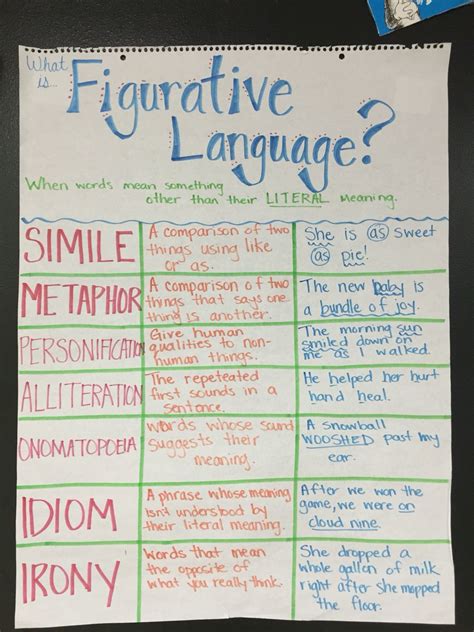 What
is...
Figurative
Language?
When words mean something
other than their LITERAL meaning.
SIMILE
A comparison of two
things using like
or as.
She is as sweet
as pie!
METAPHOR
A comparison of two
things that says one
thing is another.
The new baby is
a bundle of joy.
PERSONIFICATION
Give human
qualities to non-
human things.
The morning sun
smiled down on
me as I walked.
ALLITERATION
The repeteated
first sounds in a
sentence.
He helped her hurt
hand heal.
ONOMATOPOEIA
Words whose sound
suggests their
meaning.
A snowball
WOOSHED past my
ear.
IDIOM
A phrase whose meaning
isn't understood by
their literal meaning.
After we won the
game, we were on
cloud nine.
IRONY
Words that mean
the opposite of
what you really think.
She dropped a
whole gallon of milk
right after she mopped
the floor.